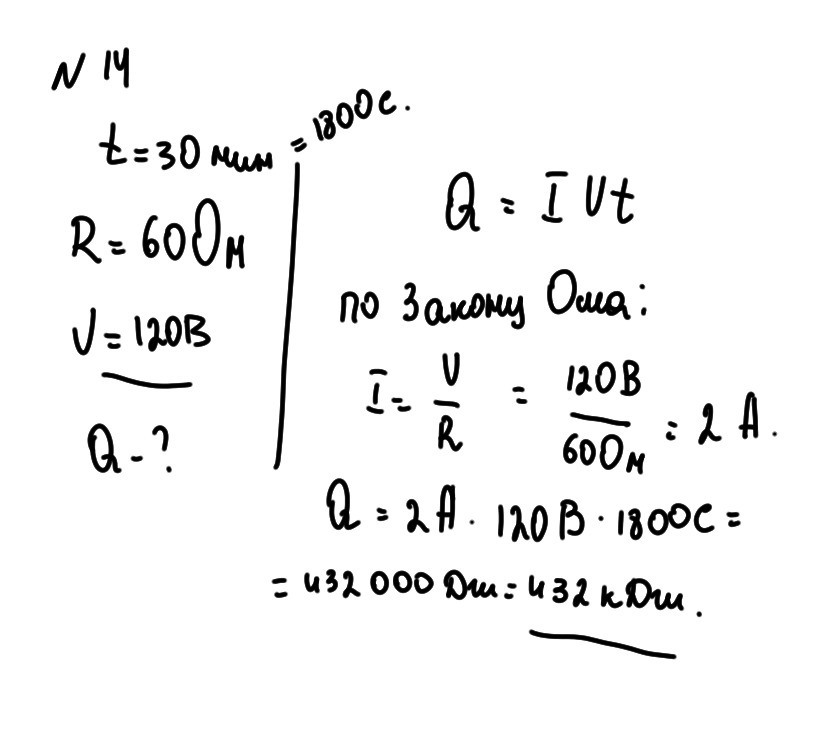 N 14
t = 30 мин = 1800 с.
R = 60 Ом
U = 120 В
Q - ?
Q = I U t
по Закону Ома:
I = U / R = 120 В / 60 Ом = 2 А.
Q = 2 А · 120 В · 1800 С =
= 432 000 Дж = 432 кДж.